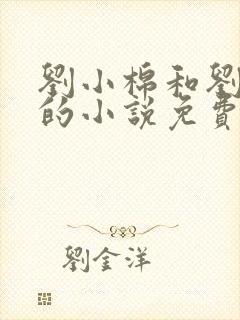 劉小棉和劉
的小說免費
劉金洋